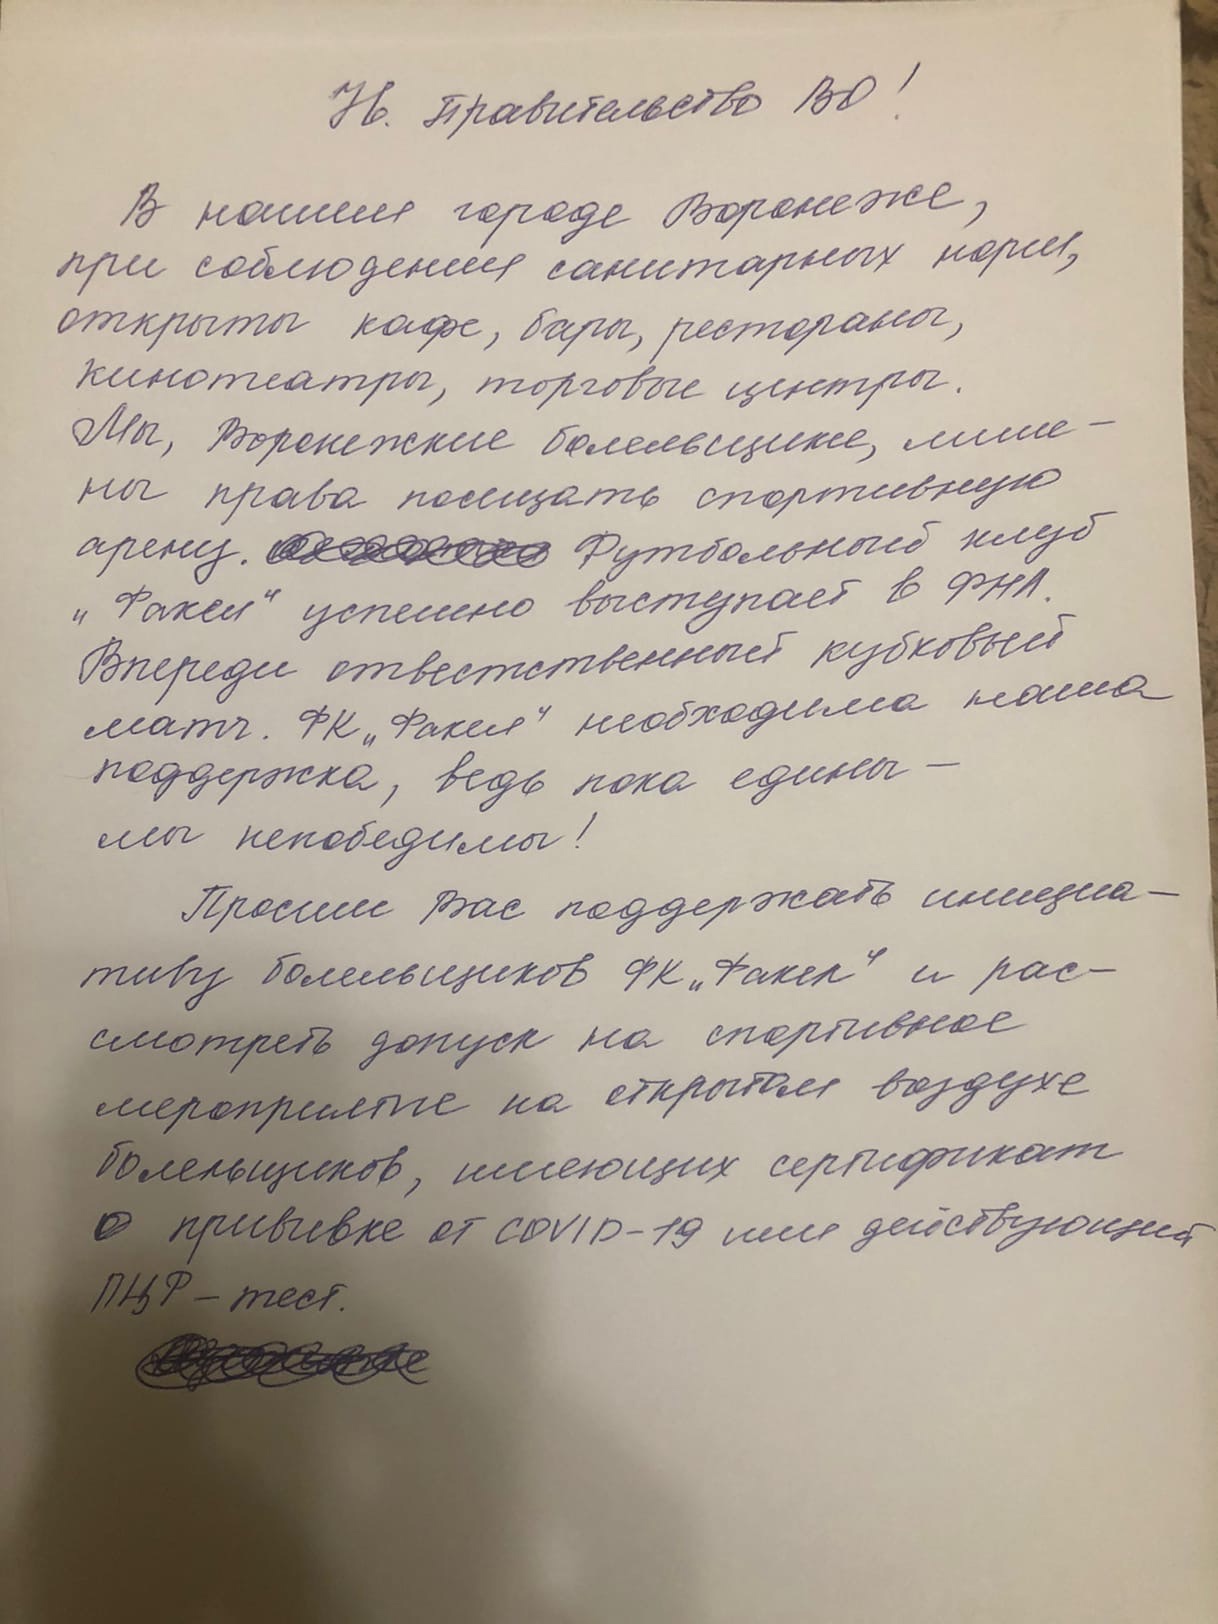 Ув. Правительство ВО!
В нашем городе Воронеже,
при соблюдении санитарных норм,
открыты кафе, бары, рестораны,
кинотеатры, торговые центры.
Мы, Воронежские болельщики, лише-
ны права посещать спортивную
арену. Футбольный клуб
„Факел“ успешно выступает в ФНЛ.
Впереди ответственный кубковый
матч. ФК „Факел“ необходима наша
поддержка, ведь пока едины –
мы непобедимы!
Просим Вас поддержать инициа-
тиву болельщиков ФК „Факел“ и рас-
смотреть допуск на спортивное
мероприятие на открытом воздухе
болельщиков, имеющих сертификат
о прививке от COVID-19 или действующий
ПЦР – тест.